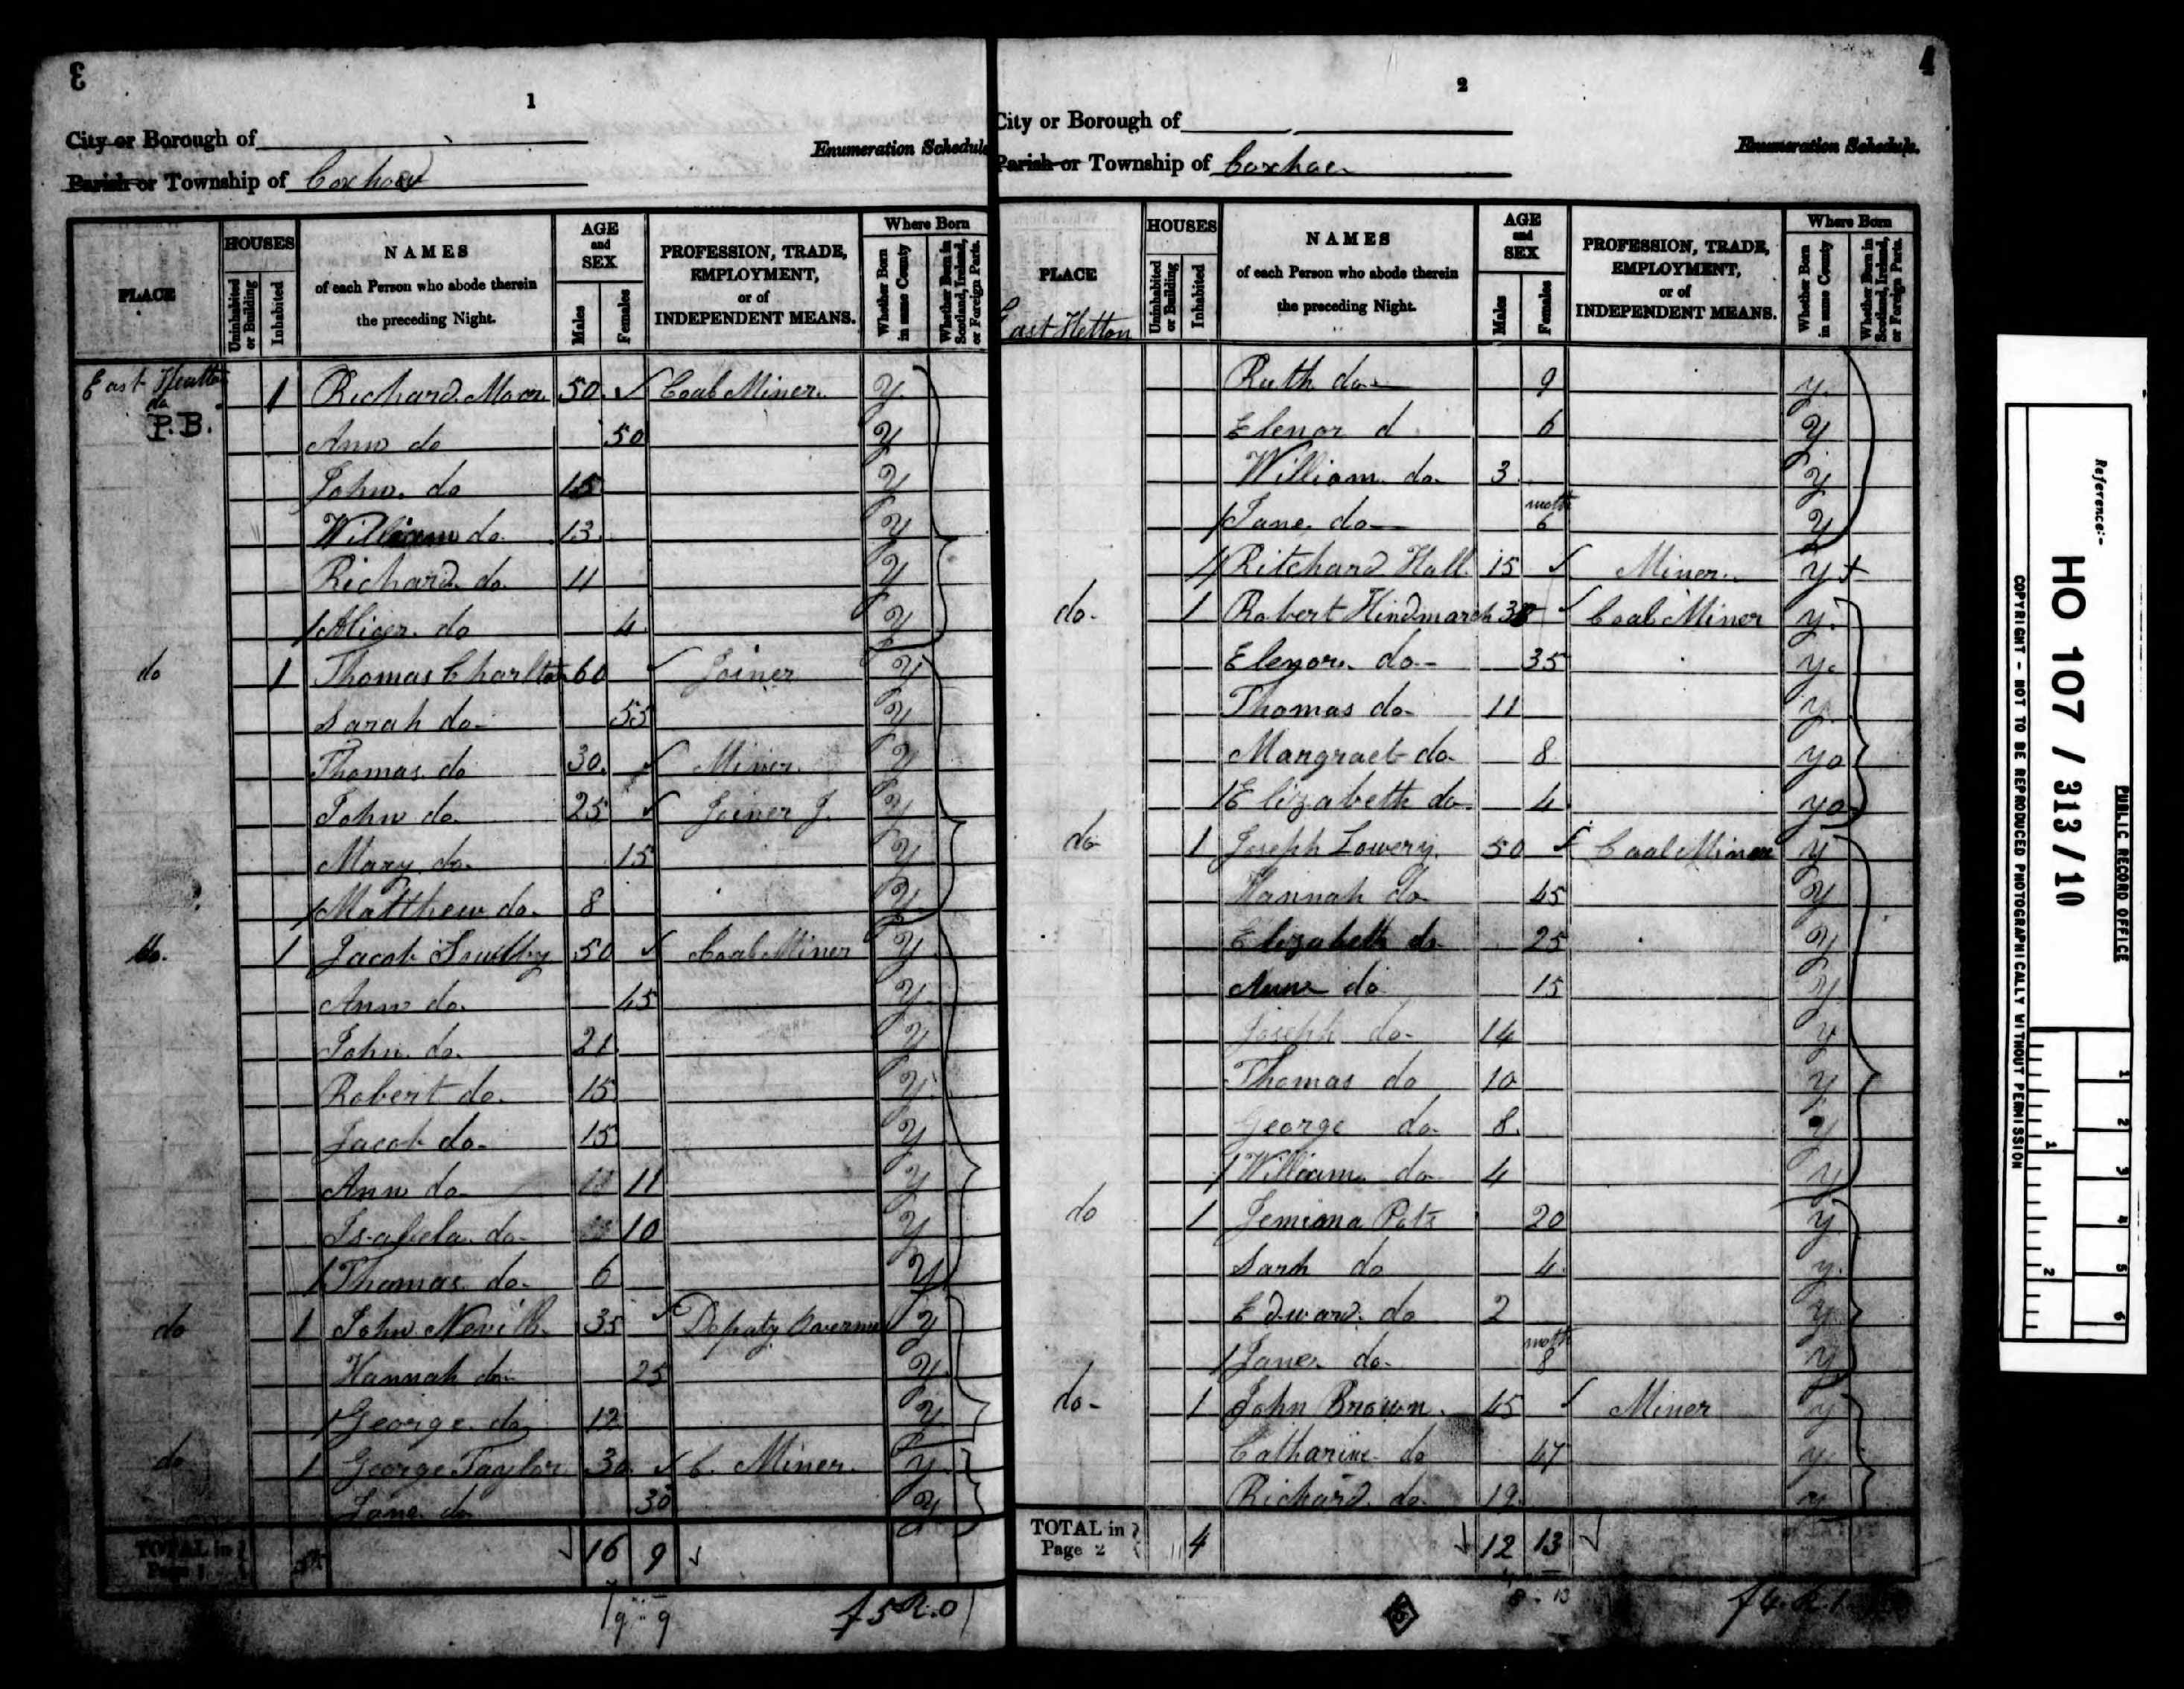 3
1
City or Borough of
Enumeration Schedule
Parish or Township of Coxhoe
PLACE
HOUSES
Uninhabited or Building
Inhabited
NAMES
of each Person who abode therein
the preceding Night.
AGE and SEX
Males
Females
PROFESSION, TRADE, EMPLOYMENT, or of INDEPENDENT MEANS.
Where Born
Whether Born in same County
Whether Born in Scotland, Ireland, or Foreign Parts.
East 1 Richard Moor 50 Coal Miner y
do P.B.
Ann do 50 y
John do 15 y
William do 13 y
Richard do 11 y
Alicer do 4 y
do 1 Thomas Charlton 60 Joiner y
Sarah do 55 y
Thomas do 30 Miner y
John do 25 Joiner J. y
Mary do 15 y
Matthew do 8 y
do 1 Jacob 50 Coal Miner y
Ann do 45 y
John do 21 y
Robert do 15 y
Jacob do 15 y
Ann do 11 y
Isabela do 10 y
Thomas do 6 y
do 1 John Nevill 35 Deputy y
Hannah do 25 y
George do 12 y
do 1 George Taylor 30 C. Miner y
Jane do 30 y
TOTAL in Page 1 16 9
9 9
f 5 R.0
4
2
City or Borough of
Enumeration Schedule.
Parish or Township of Coxhoe
PLACE
East Hetton
HOUSES
Uninhabited or Building
Inhabited
NAMES
of each Person who abode therein
the preceding Night.
AGE and SEX
Males
Females
PROFESSION, TRADE, EMPLOYMENT, or of INDEPENDENT MEANS.
Where Born
Whether Born in same County
Whether Born in Scotland, Ireland, or Foreign Parts.
Ruth do 9 y
Elenor d 6 y
William do 3 y
Jane do 6 y
Ritchard Hall 15 Miner y
do 1 Robert Hindmarch Coal Miner y
Elenor do 35 y
Thomas do 11 y
Margraet do 8 yo
Elizabeth do 4 yo
do 1 Joseph Lowery 50 Coal Miner y
Hannah do 45 y
Elizabeth do 25 y
Anne do 15 y
Joseph do 14 y
Thomas do 10 y
George do 8 y
William do 4 y
do 1 Jemima Pots 20 y
Sarh do 4 y
Edward do 2 y
Janer do 8 y
do 1 John Brown 45 Miner y
Catharine do 47 y
Richard do 19 y
TOTAL in Page 2 4 12 13
8 13
f 4. R. 1
Reference:-
HO 107 / 313/10
PUBLIC RECORD OFFICE
COPYRIGHT - NOT TO BE REPRODUCED PHOTOGRAPHICALLY WITHOUT PERMISSION
1 2 3 4 5 6
1 2